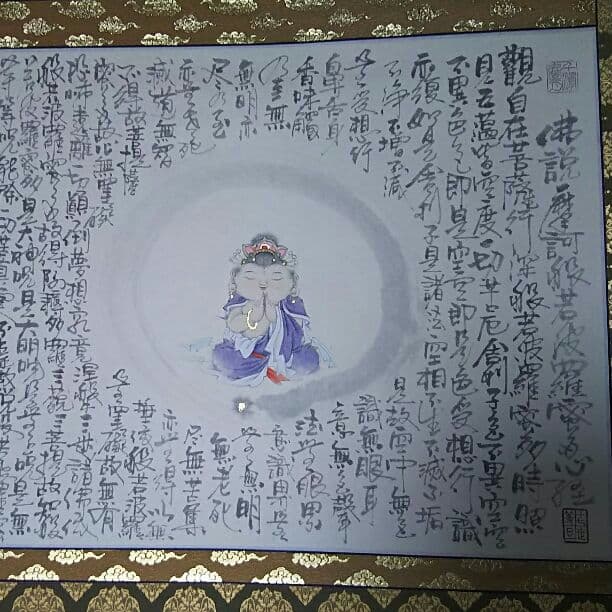 佛說摩訶般若波羅蜜多心經
觀自在菩薩行深般若波羅蜜多時照
見五蘊皆空度一切苦厄舍利子色不異空空
不異色色即是空空即是色受想行識
亦復如是舍利子是諸法空相不生不滅不垢
不淨不增不減
是故空中無色
無受想行
識無眼耳
鼻舌身
意無色聲
香味觸
法無眼界
乃至無
意識界無
無明亦
無無明
盡乃至
無老死
亦無老死
盡無苦集
滅道無智
亦無得以無
所得故菩提薩
埵依般若波羅
蜜多故心無罣礙
無罣礙故無有
恐怖遠離一切顛倒夢想究竟涅槃三世諸佛依
般若波羅蜜多故得阿耨多羅三藐三菩提故知般
若波羅蜜多是大神咒是大明咒是無上咒是無
等等咒能除一切苦真實不虛故說般若波羅